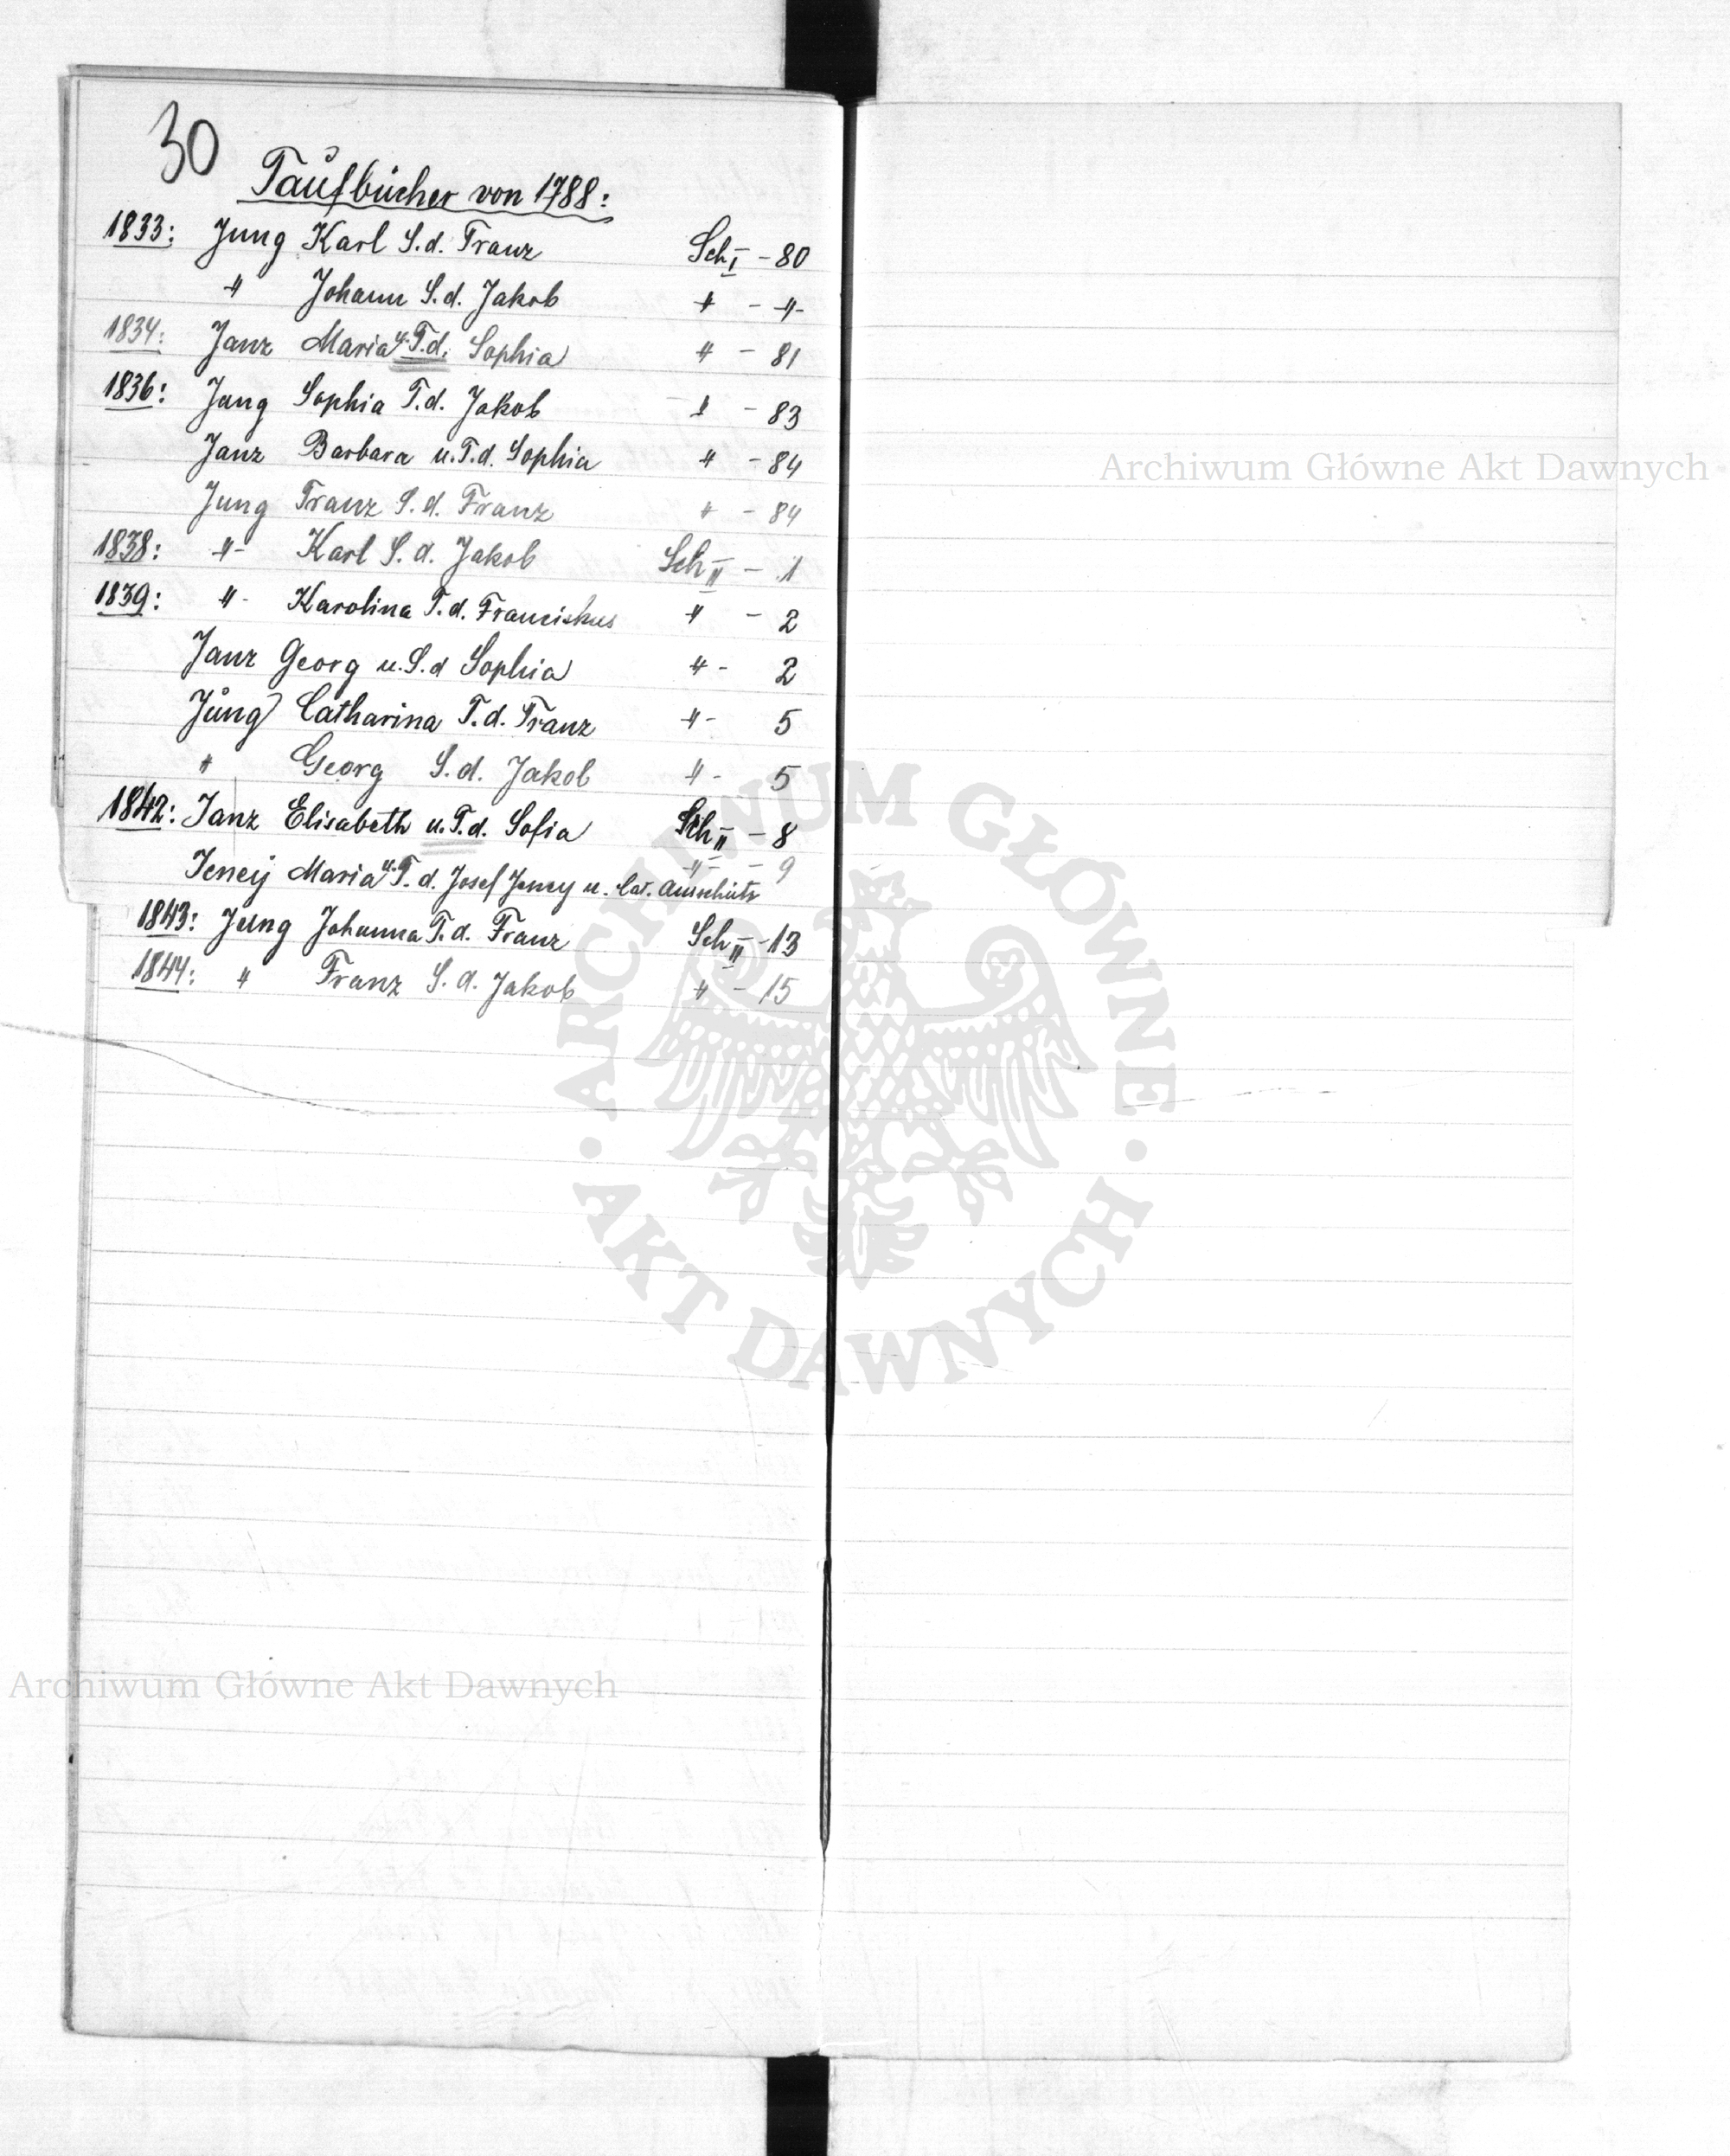 30
Taufbücher von 1788:
1833: Jung Karl S.d. Franz Sch I - 80
" Johann S.d. Jakob " - "
1834: Janz Maria u. T.d. Sophia " - 81
1836: Jung Sophia T.d. Jakob " - 83
Janz Barbara u.T.d. Sophia " - 84
Jung Franz S.d. Franz " - 84
1838: " Karl S.d. Jakob Sch II - 1
1839: " Karolina T.d. Franciskus " - 2
Janz Georg u.S.d Sophia " - 2
Jung Catharina T.d. Franz " - 5
" Georg S.d. Jakob " - 5
1842: Janz Elisabeth u.T.d. Sofia Sch II - 8
" - 9
Jeneij Maria u. T.d. Josef Jeney u. Cat.
1843: Jung Johanna T.d. Franz Sch II - 13
1844: " Franz S.d. Jakob " - 15
Archiwum Główne Akt Dawnych
ARCHIWUM GŁÓWNE · AKT DAWNYCH ·
Archiwum Główne Akt Dawnych